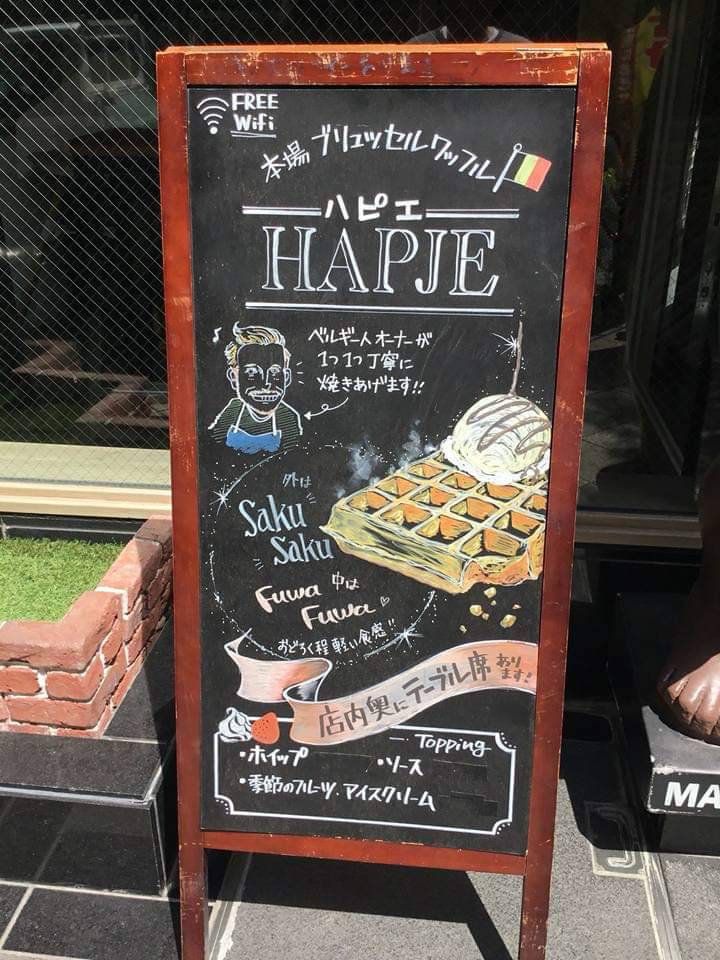 FREE
Wifi
本場 ブリュッセルワッフル
ハピエ
HAPJE
ベルギー人オーナーが
1つ1つ丁寧に
焼きあげます!!
外は
Saku
Saku
Fuwa 中は
Fuwa
おどろく程軽い食感!!
店内奥にテーブル席あります!
Topping
・ホイップ ・ソース
・季節のフルーツ・アイスクリーム
MA